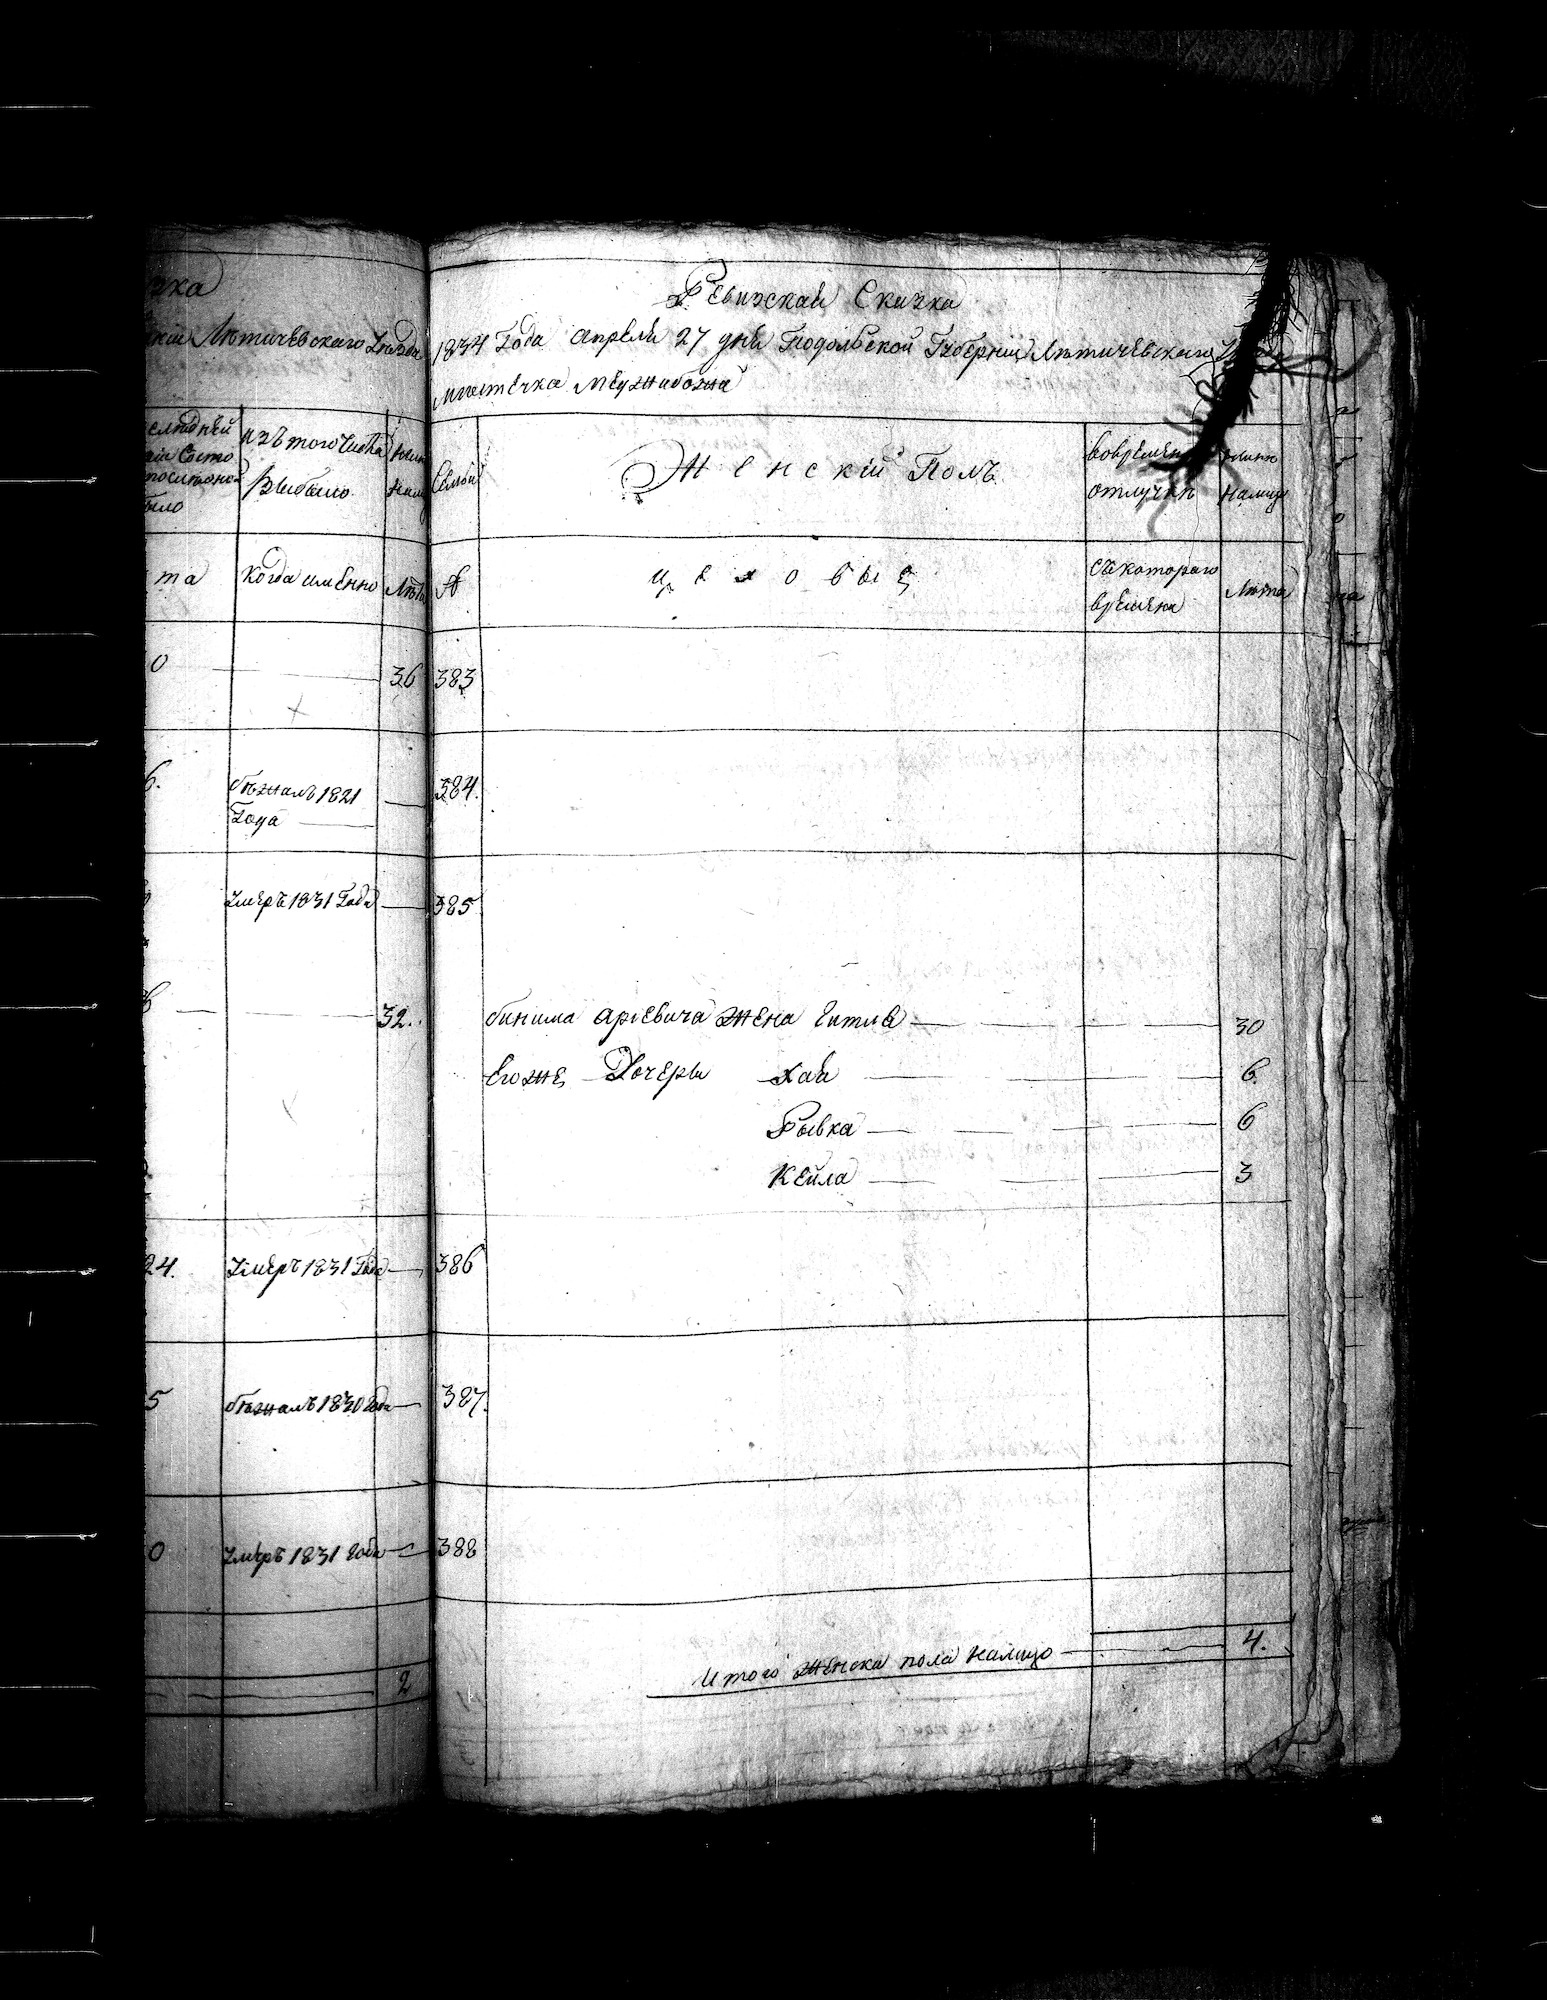 зка
Лѣтичевскаго Уезда
изъ того числа
выбыло
когда именно
Лѣта
36
бѣжалъ 1821
Года
умеръ 1831 Года
32.
24.
умеръ 1831 Года
5
бѣжалъ 1830 года
0
умеръ 1831 года
2
Ревизская Скаска
1834 Года апреля 27 дня Подольской Губерніи Лѣтичевскаго
мѣстечка Межибожа
Семьи
Женскій Полъ
вовремен
отлучкѣ
нынѣ
налицо
№
цеховые
съ котораго
времени
Лѣта
383
384.
385
бинима аріевича жена гитля 30
Егоже Дочеры хая 6.
Рывка 6
Кейла 3
386
387.
388
Итого женска пола налицо 4.